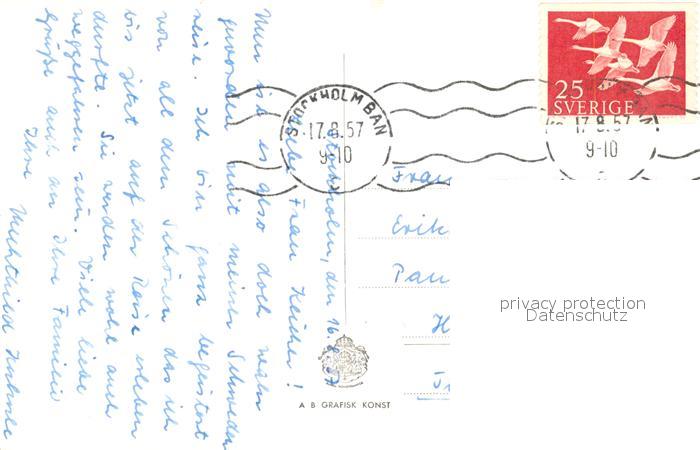 Stockholm, den 16.8.57
Liebe Frau Keicher!
Nun ist es also doch wahr
geworden mit meiner Schweden
reise. Ich bin ganz begeistert
von all dem Schönen das ich
bis jetzt auf der Reise erleben
durfte. Sie werden wohl auch
weggefahren sein. Viele liebe
Grüße auch an Ihre Familie
Ihre Mechthild
STOCKHOLM BAN
17.8.57
9-10
25
SVERIGE
17.8.57
9-10
Frau
Erik
Pau
H
privacy protection
Datenschutz
A B GRAFISK KONST